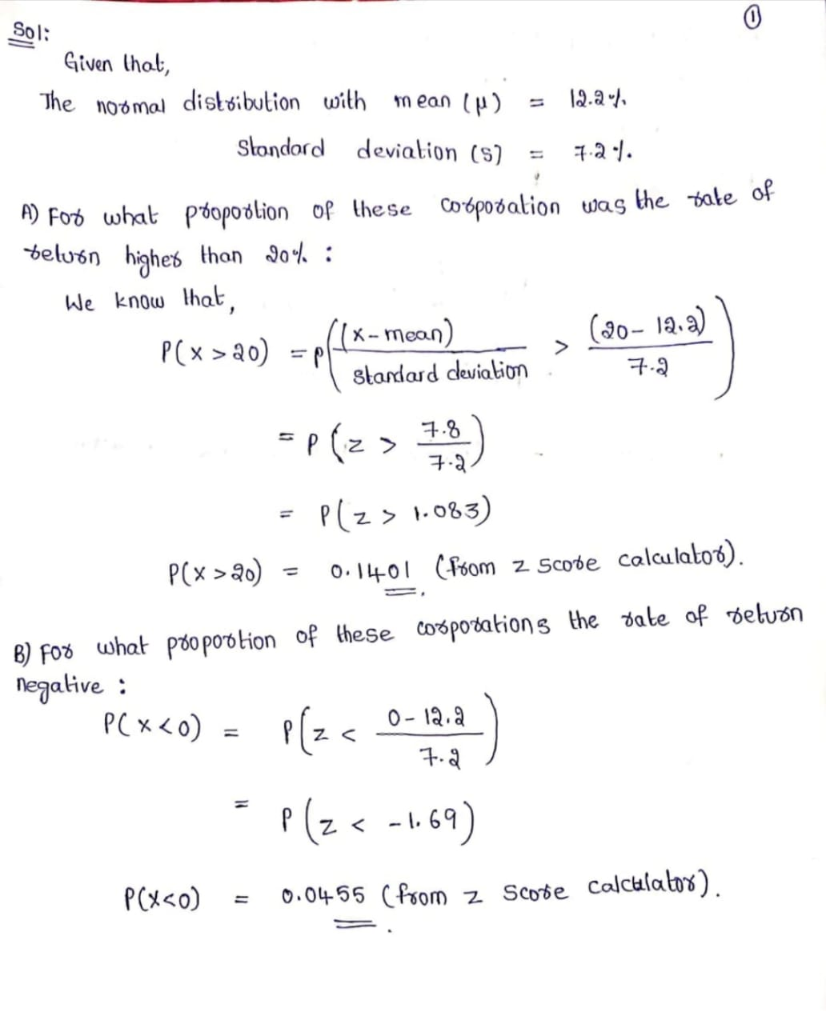 ①
Sol:
Given that,
The normal distribution with mean (μ) = 12.2%
Standard deviation (s) = 7.2%.
A) For what proportion of these corporation was the rate of
return higher than 20% :
We know that,
P(x > 20) = P((x - mean) / standard deviation > (20 - 12.2) / 7.2)
= P(z > 7.8 / 7.2)
= P(z > 1.083)
P(x > 20) = 0.1401 (from z score calculator).
B) For what proportion of these corporations the rate of return
negative :
P(x < 0) = P(z < 0 - 12.2 / 7.2)
= P(z < -1.69)
P(x < 0) = 0.0455 (from z score calculator).